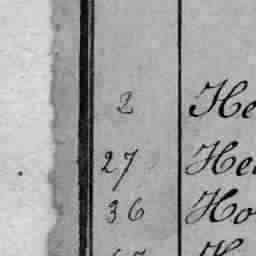 2 He
27 Hei
36 Ho